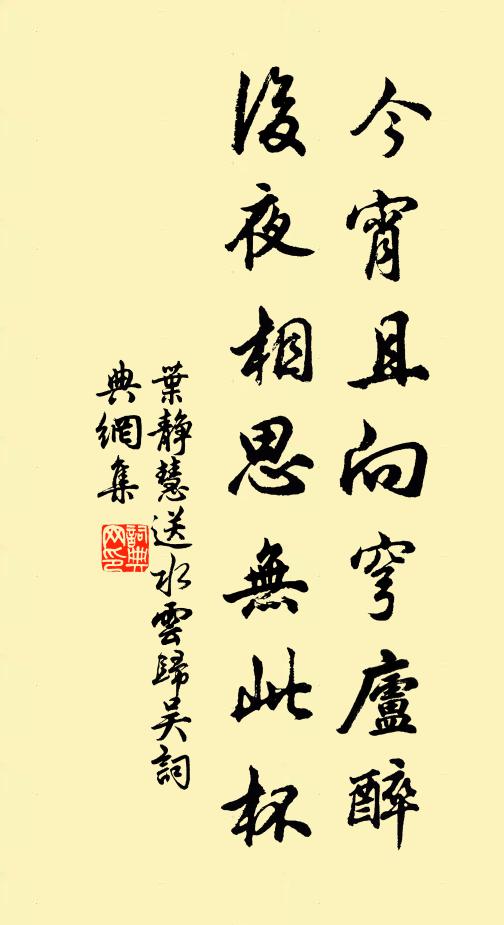 今宵且向穹廬醉
後夜相思無此杯
葉靜慧送水雲歸吳詞
典網集
詞典網印